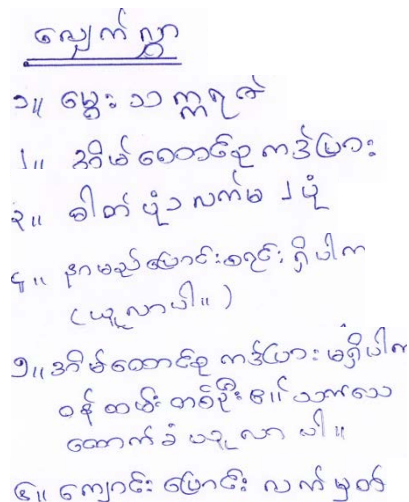 လျှောက်လွှာ
၁။ မွေးသက္ကရာဇ်
၂။ အိမ်ထောင်စုကဒ်ပြား
၃။ ဓါတ်ပုံ ၁ လက်မ ၂ ပုံ
၄။ နာမည်ပြောင်းစရင်း ရှိပါက
(ယူလာပါ။)
၅။ အိမ်ထောင်စု ကဒ်ပြား မရှိပါက
ဝန်ထမ်းတစ်ဦး၏ သက်သေ
ထောက်ခံ ယူလာ ပါ။
၆။ ကျောင်းပြောင်း လက်မှတ်